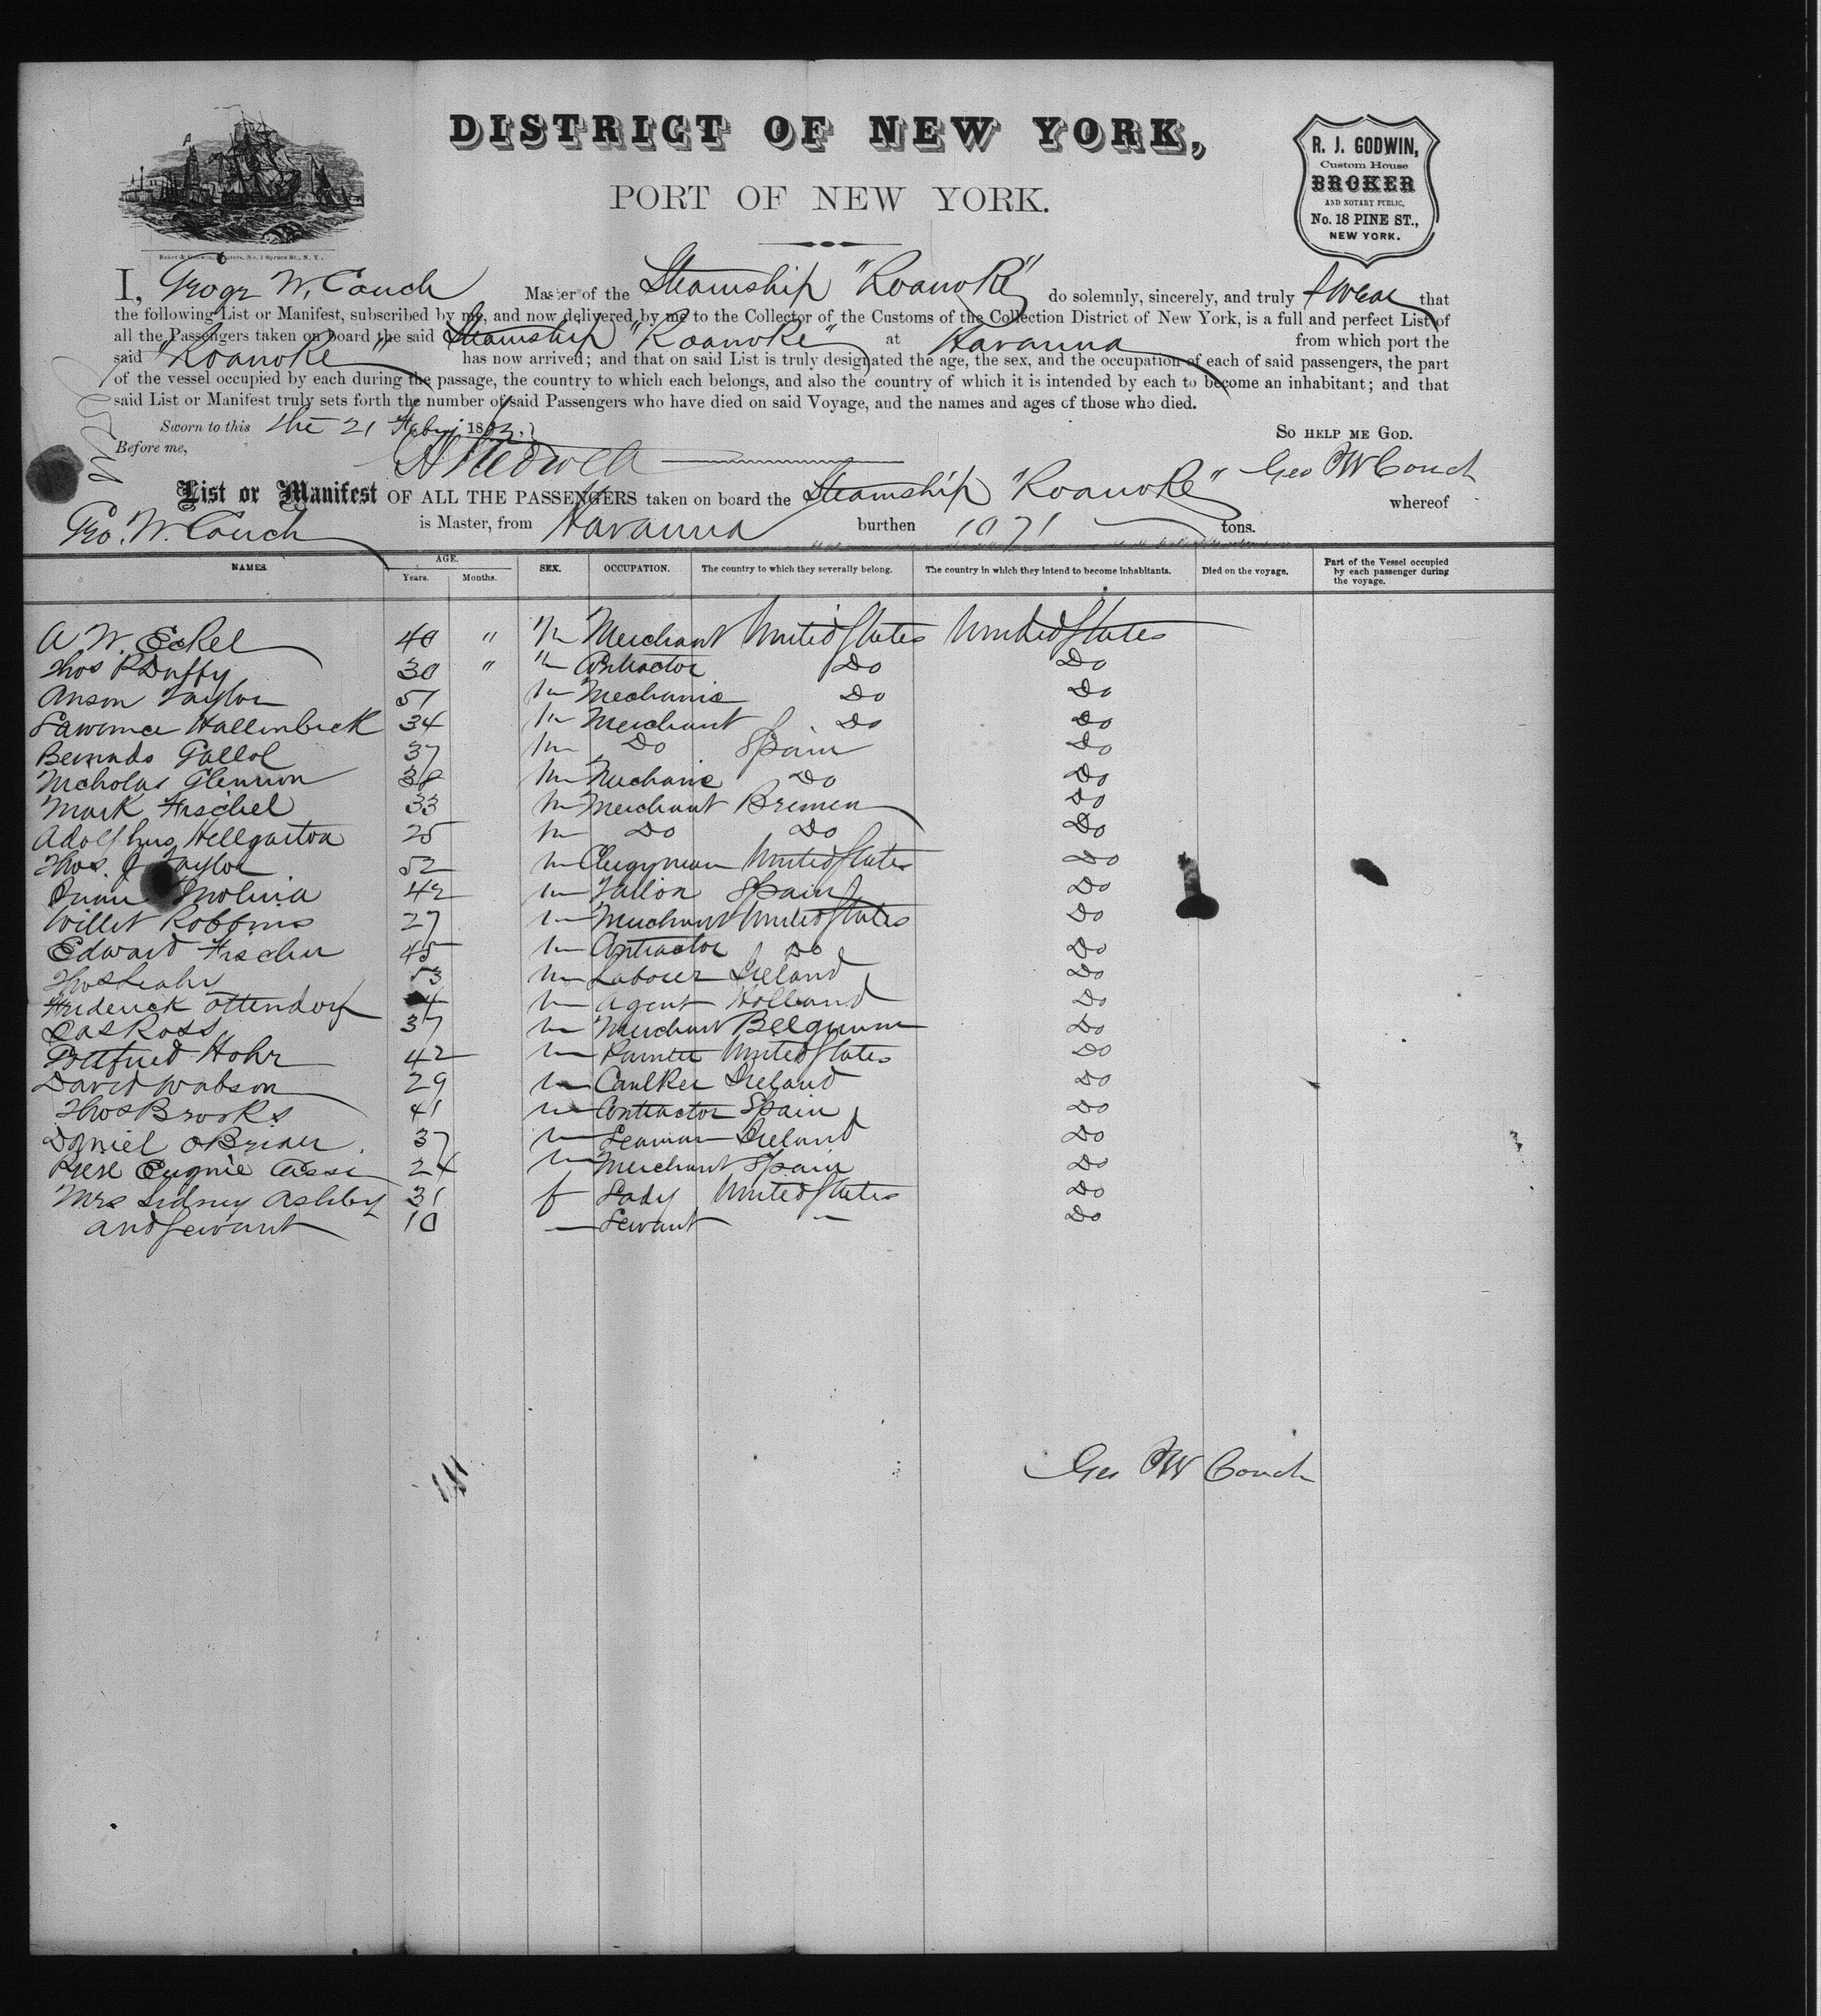 DISTRICT OF NEW YORK,
PORT OF NEW YORK.
R. J. GODWIN,
Custom House
BROKER
AND NOTARY PUBLIC,
No. 18 PINE ST.,
NEW YORK.
Baker & Godwin, Printers, No. 1 Spruce St., N. Y.
I, W. Couch Master of the Steamship "Roanoke" do solemnly, sincerely, and truly swear that
the following List or Manifest, subscribed by me, and now delivered by me to the Collector of the Customs of the Collection District of New York, is a full and perfect List of
all the Passengers taken on board the said Steamship "Roanoke" at Havanna from which port the
said "Roanoke" has now arrived; and that on said List is truly designated the age, the sex, and the occupation of each of said passengers, the part
of the vessel occupied by each during the passage, the country to which each belongs, and also the country of which it is intended by each to become an inhabitant; and that
said List or Manifest truly sets forth the number of said Passengers who have died on said Voyage, and the names and ages of those who died.
Sworn to this the 21 18 So HELP ME GOD.
Before me,
Geo W Couch
List or Manifest OF ALL THE PASSENGERS taken on board the Steamship "Roanoke" whereof
Geo. W. Couch is Master, from Havanna burthen 1071 tons.
NAMES. AGE. Years. Months. SEX. OCCUPATION. The country to which they severally belong. The country in which they intend to become inhabitants. Died on the voyage. Part of the Vessel occupied by each passenger during the voyage.
A W. Eckel 40 " m Merchant United States United States
Thos P Duffy 30 " m Contractor Do Do
Anson Taylor 51 m Mechanic Do Do
Lawrence Hallenbeck 34 m Merchant Do Do
Bernado Gallol 37 m Do Spain Do
Nicholas Glennon m Mechanic Do Do
Mark Fischel 33 m Merchant Bremen Do
Adolfhus Hellgarton 25 m Do Do Do
Thos. J Taylor 52 m Clergyman United States Do
Juan Molina 42 m Spain Do
Willet Robbins 27 m Merchant United States Do
Edward Fischer 45 m Contractor Do Do
Thos Leahy 53 m Labourer Ireland Do
Frederick Ottendorf m Agent Holland Do
Ross 37 m Merchant Belgium Do
Gottfried Hohr 42 m United States Do
David Watson 29 m Caulker Ireland Do
Thos Brooks 41 m Contractor Spain Do
Daniel OBrien 37 m Seaman Ireland Do
Eugnie 24 m Merchant Spain Do
Mrs Sidney Ashby 31 f Lady United States Do
and servant 10 — Servant — Do
Geo W Couch